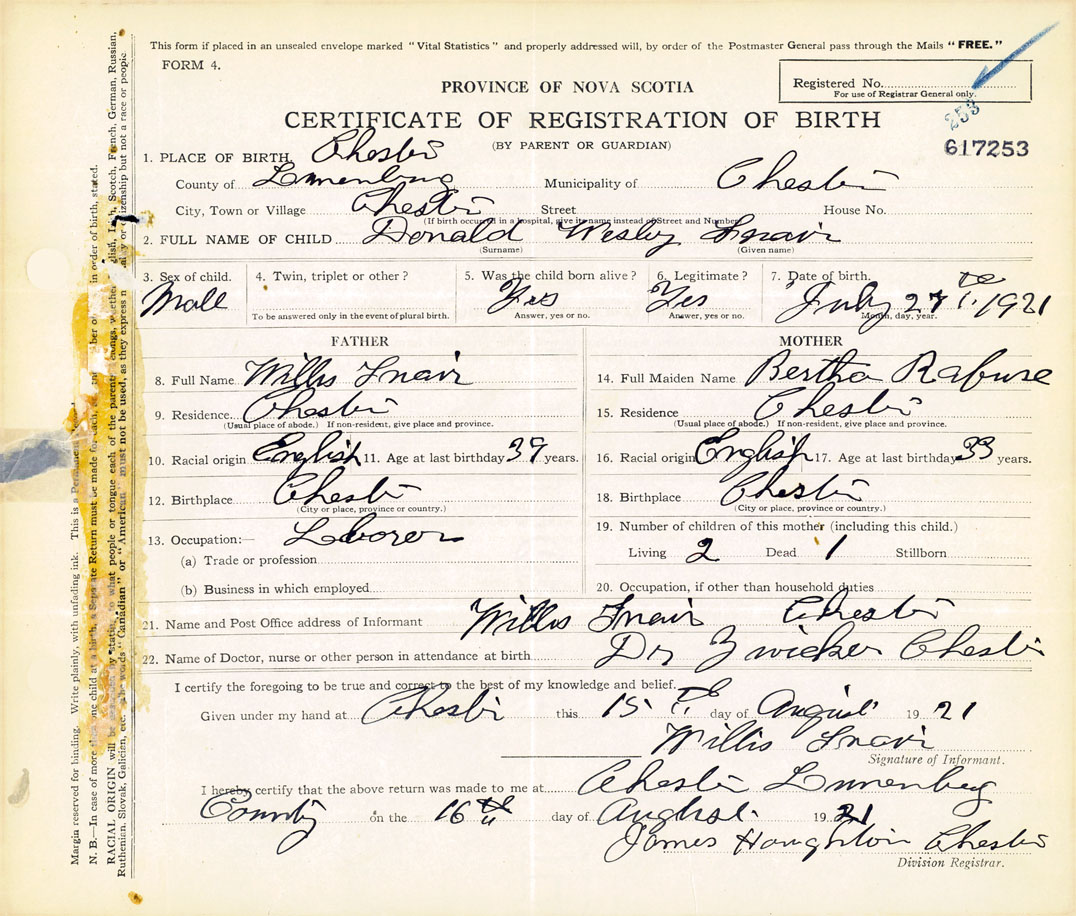 This form if placed in an unsealed envelope marked "Vital Statistics" and properly addressed will, by order of the Postmaster General pass through the Mails "FREE."
FORM 4.
Registered No.
For use of Registrar General only.
PROVINCE OF NOVA SCOTIA
253
CERTIFICATE OF REGISTRATION OF BIRTH
(BY PARENT OR GUARDIAN)
617253
1. PLACE OF BIRTH, Chester
County of Lunenburg Municipality of Chester
City, Town or Village Chester Street House No.
(If birth occurred in a hospital, give its name instead of Street and Number)
2. FULL NAME OF CHILD Donald Wesley Snair
(Surname) (Given name)
3. Sex of child. 4. Twin, triplet or other? 5. Was the child born alive? 6. Legitimate? 7. Date of birth.
Male Yes Yes July 27th 1921
To be answered only in the event of plural birth. Answer, yes or no. Answer, yes or no. Month, day, year.
FATHER MOTHER
8. Full Name Willis Snair 14. Full Maiden Name Bertha Rafuse
9. Residence Chester 15. Residence Chester
(Usual place of abode.) If non-resident, give place and province. (Usual place of abode.) If non-resident, give place and province.
10. Racial origin English 11. Age at last birthday 39 years. 16. Racial origin English 17. Age at last birthday 33 years.
12. Birthplace Chester 18. Birthplace Chester
(City or place, province or country.) (City or place, province or country.)
13. Occupation:— Laborer 19. Number of children of this mother (including this child.)
(a) Trade or profession Living 2 Dead 1 Stillborn
(b) Business in which employed 20. Occupation, if other than household duties
21. Name and Post Office address of Informant Willis Snair Chester
22. Name of Doctor, nurse or other person in attendance at birth Dr Zwicker Chester
I certify the foregoing to be true and correct to the best of my knowledge and belief.
Given under my hand at Chester this 15th day of August 1921
Willis Snair
Signature of Informant.
I hereby certify that the above return was made to me at Chester Lunenburg
County on the 16th day of August 1921
James Houghton Chester
Division Registrar.
Margin reserved for binding. Write plainly, with unfading ink. This is a Permanent
N. B.—In case of more than one child at a birth, a Separate Return must be made for each, in order of birth, stated.
RACIAL ORIGIN will be by stating to what people or tongue each of the parents belongs, whether English, Irish, Scotch, French, German, Russian,
Ruthenian, Slovak, Galician, etc. The words "Canadian" or "American" must not be used, as they express citizenship but not a race or people